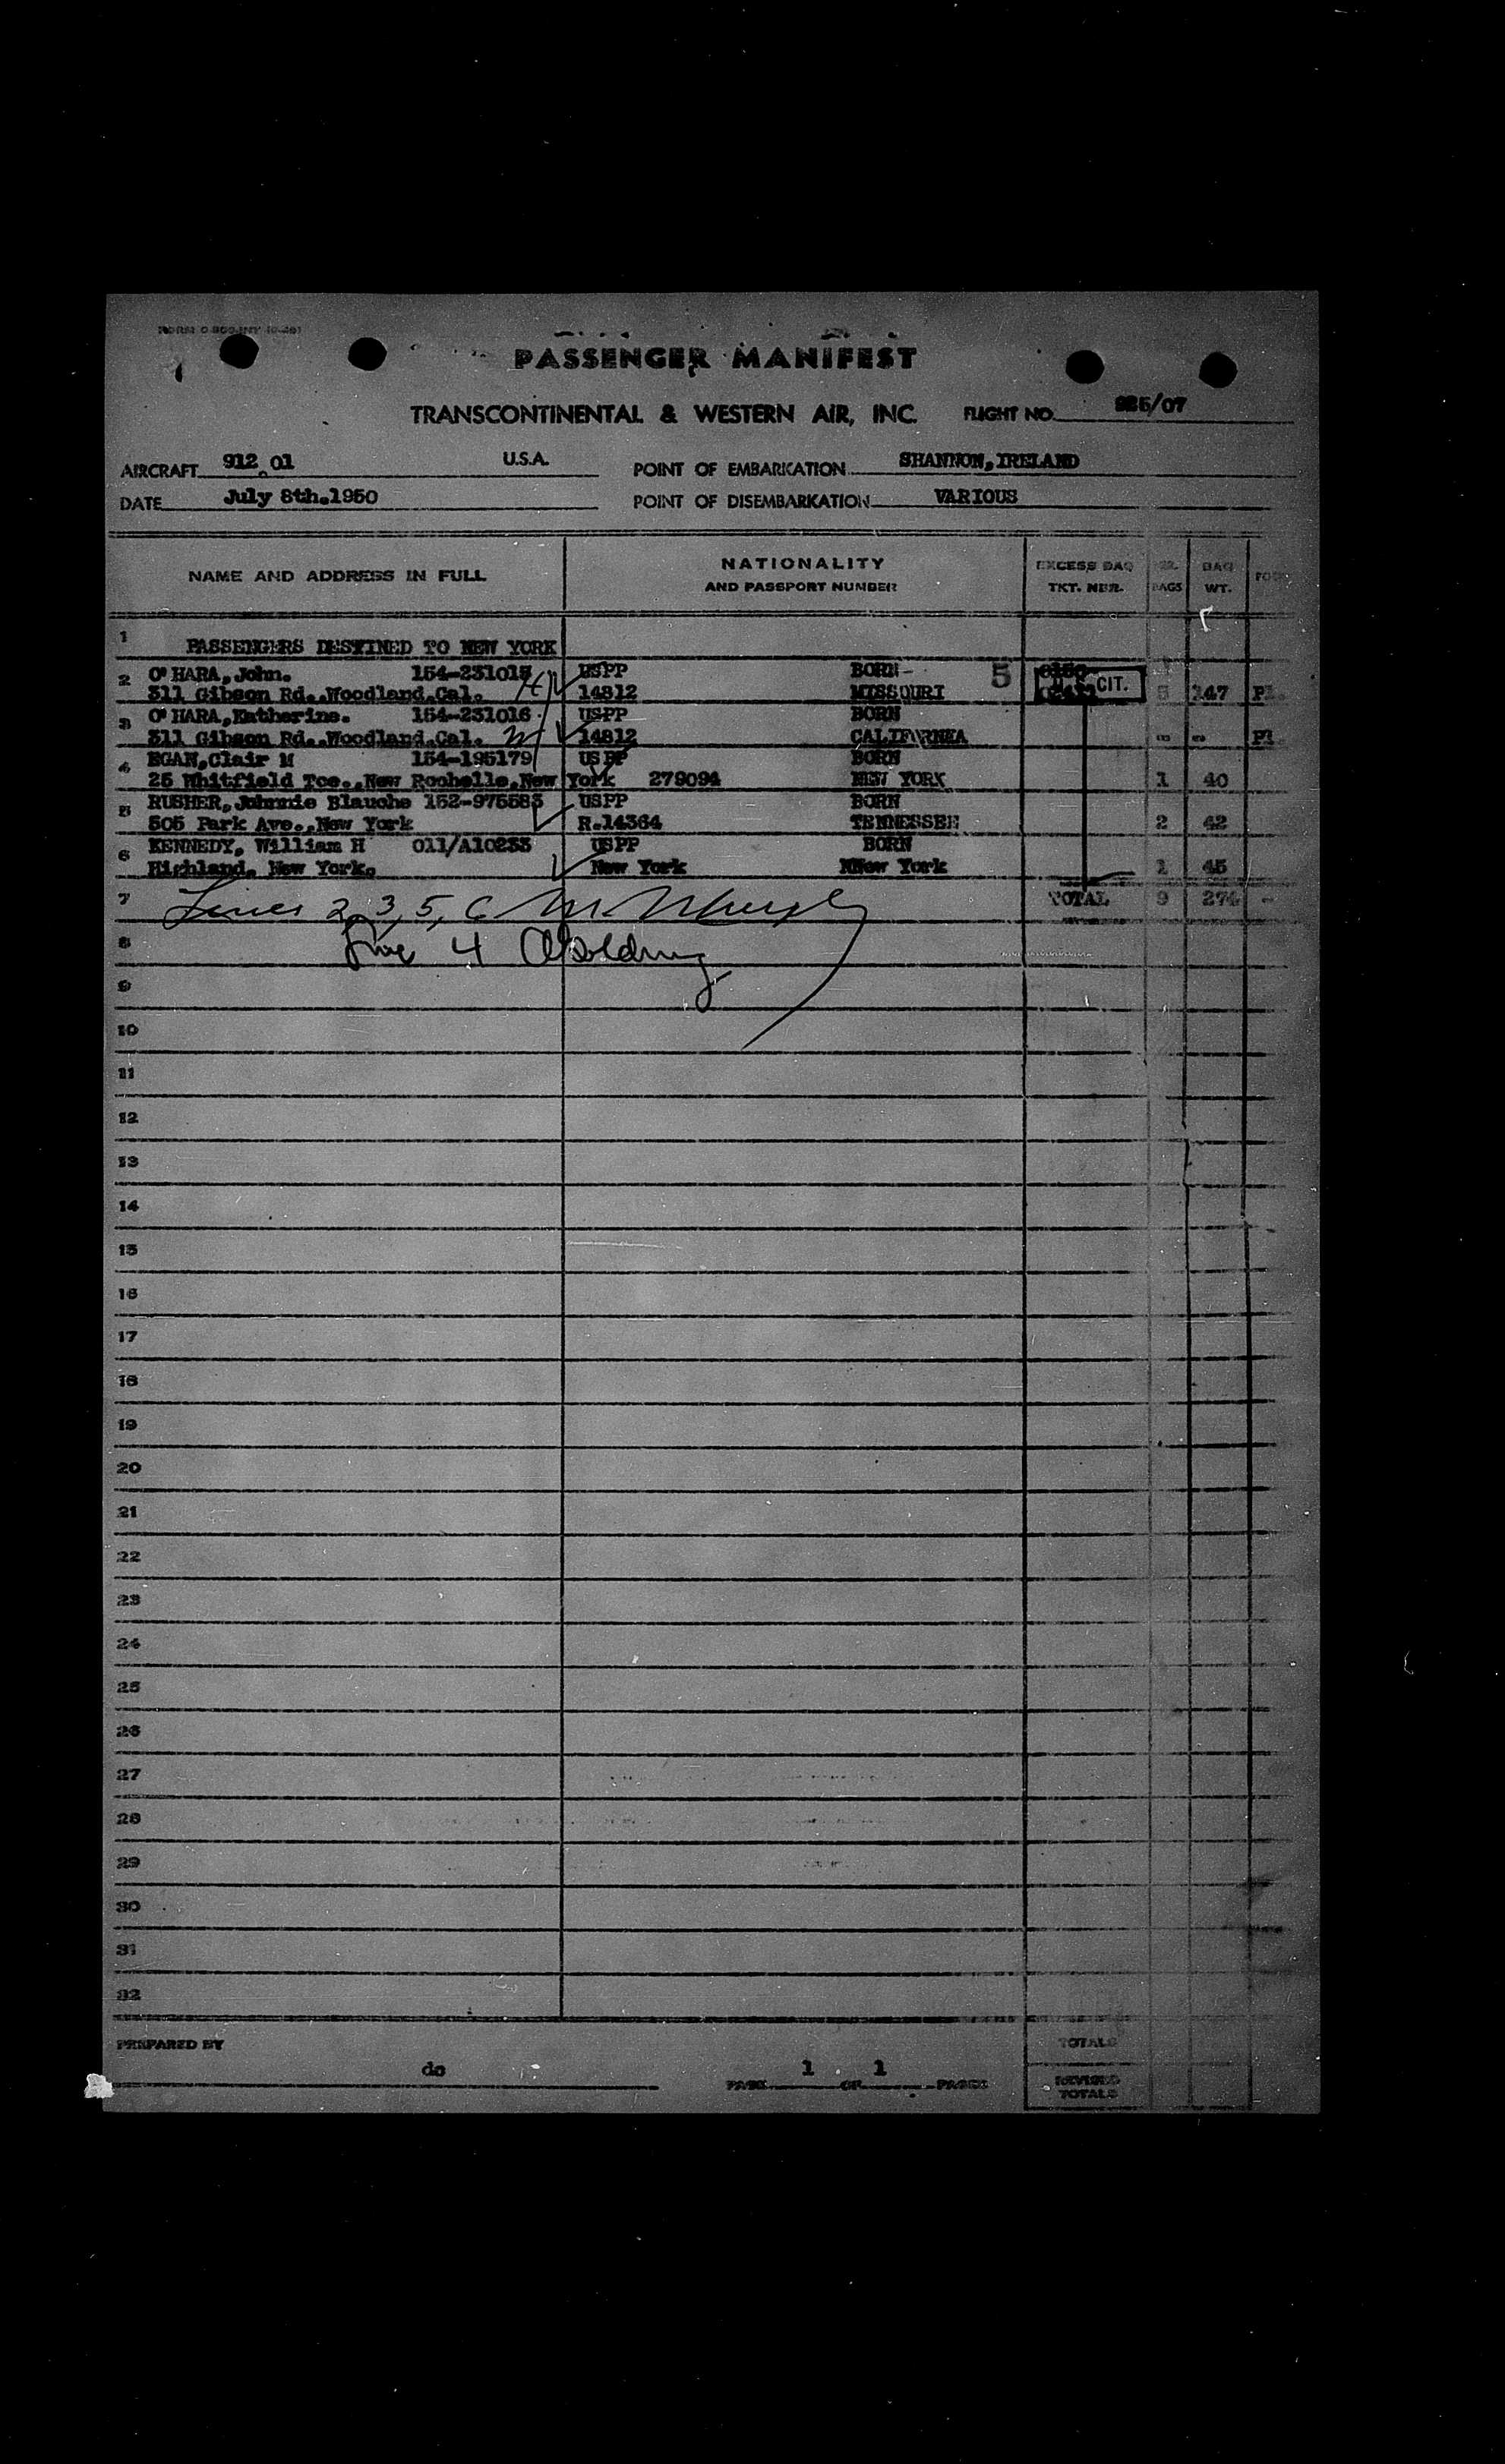 PASSENGER MANIFEST
TRANSCONTINENTAL & WESTERN AIR, INC. FLIGHT NO. /07
AIRCRAFT 912 01 U.S.A. POINT OF EMBARKATION SHANNON, IRELAND
DATE July 8th.1950 POINT OF DISEMBARKATION VARIOUS
NAME AND ADDRESS IN FULL NATIONALITY AND PASSPORT NUMBER EXCESS BAG TKT. NBR. BAGS BAG WT.
1 PASSENGERS DESTINED TO NEW YORK
2 O'HARA, John. 154-231015 USPP BORN - 5
311 Gibson Rd.,Woodland.Cal. 14812 MISSOURI U.S. CIT. 5 147 Pl.
3 O'HARA,Katherine. 154-231016 USPP BORN
311 Gibson Rd.,Woodland.Cal. 14812 CALIFORNIA - - Pl.
4 EGAN,Clair M 154-195179 US PP BORN
25 Whitfield Tce.,New Rochelle.New York 279094 NEW YORK 1 40
5 RUSHER, Johnnie Blauche 152-975583 USPP BORN
505 Park Ave.,New York R.14364 TENNESSEE 2 42
6 KENNEDY, William H 011/A10233 USPP BORN
Highland. New York. New York NNew York 1 45
7 Lines 2, 3, 5, 6 M Murphy TOTAL 9 274 -
8 Line 4
9
10
11
12
13
14
15
16
17
18
19
20
21
22
23
24
25
26
27
28
29
30
31
32
PREPARED BY do PAGE 1 OF 1 PAGES TOTALS
REVISED TOTALS